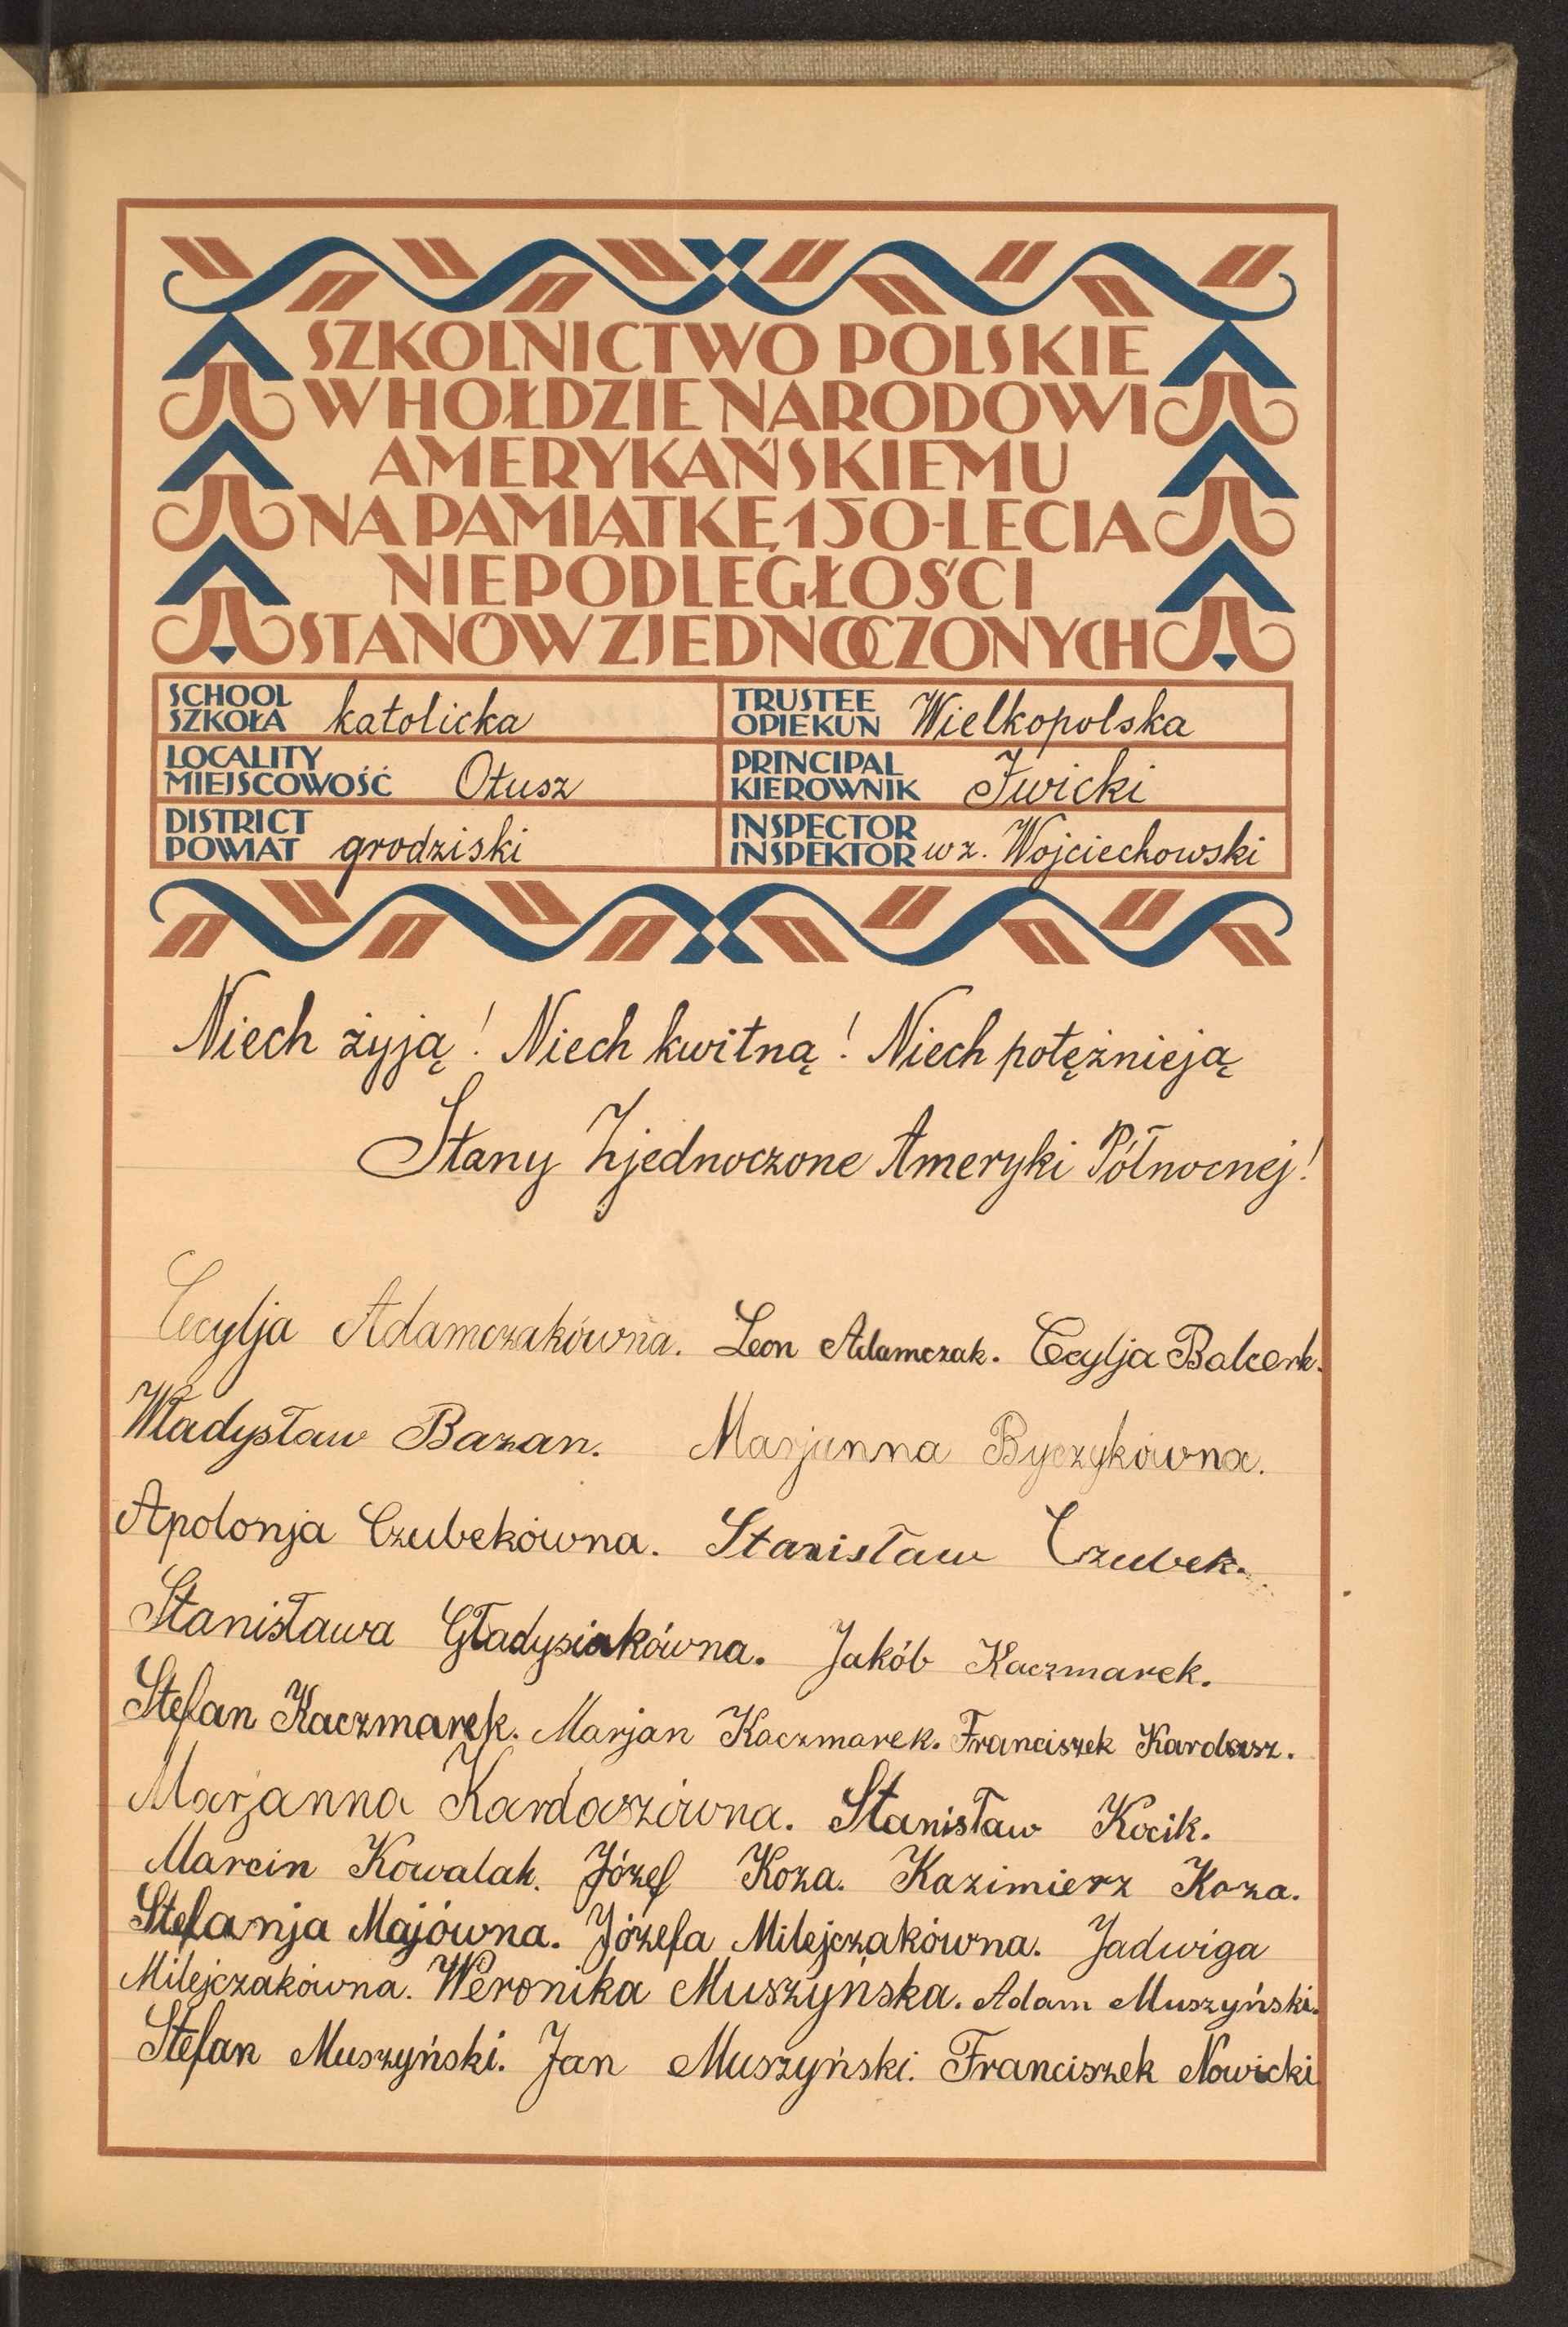 SZKOLNICTWO POLSKIE
W HOŁDZIE NARODOWI
AMERYKAŃSKIEMU
NA PAMIĄTKĘ 150-LECIA
NIEPODLEGŁOŚCI
STANÓW ZJEDNOCZONYCH
SCHOOL
SZKOŁA katolicka
TRUSTEE
OPIEKUN Wielkopolska
LOCALITY
MIEJSCOWOŚĆ Otusz
PRINCIPAL
KIEROWNIK Iwicki
DISTRICT
POWIAT grodziski
INSPECTOR
INSPEKTOR wz. Wojciechowski
Niech żyją! Niech kwitną! Niech potężnieją
Stany Zjednoczone Ameryki Północnej!
Cecylja Adamczakówna. Leon Adamczak. Cecylja Balcerk.
Władysław Bazan. Marjanna Byczykówna.
Apolonja Czubekówna. Stanisław Czubek.
Stanisława Gładysiakówna. Jakób Kaczmarek.
Stefan Kaczmarek. Marjan Kaczmarek. Franciszek Kardasz.
Marjanna Kardaszówna. Stanisław Kocik.
Marcin Kowalak. Józef Koza. Kazimierz Koza.
Stefanja Majówna. Józefa Milejczakówna. Jadwiga
Milejczakówna. Weronika Muszyńska. Adam Muszyński.
Stefan Muszyński. Jan Muszyński. Franciszek Nowicki